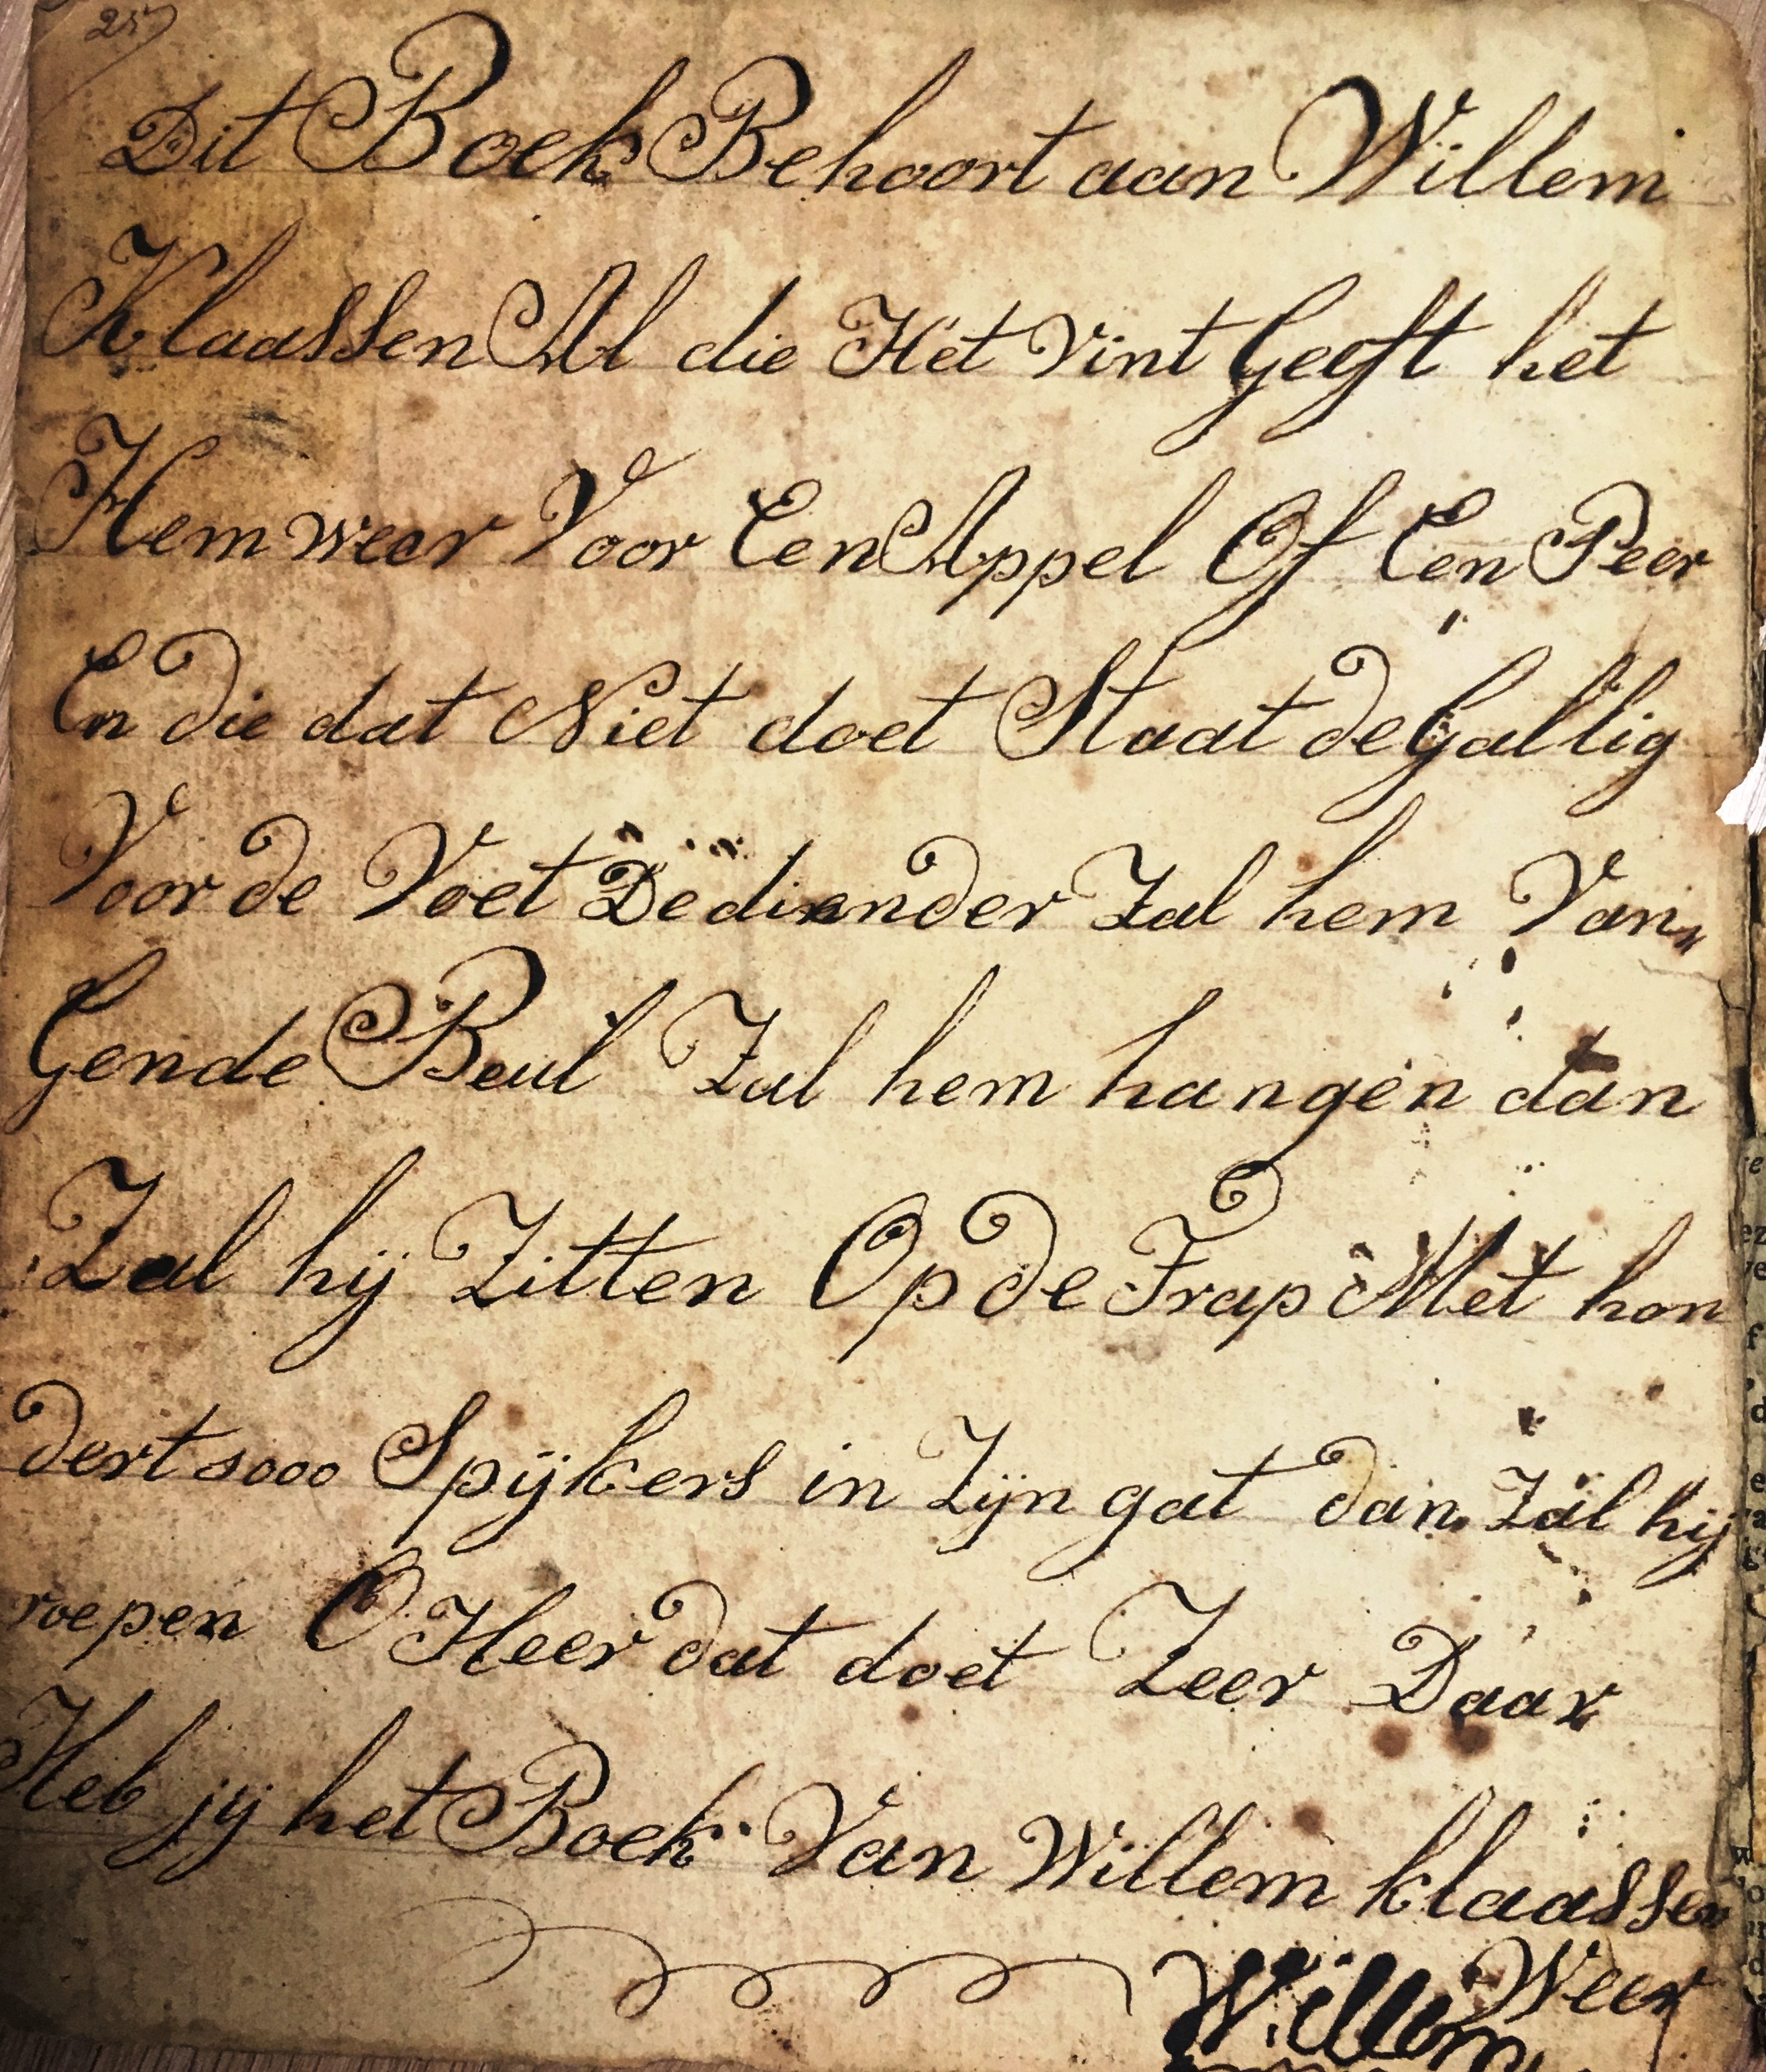 25
Dit Boek Behoort aan Willem
Klaassen Al die Het Vint Geeft het
Hem weer Voor Een Appel Of Een Peer
En die dat Niet doet Staat de Gallig
Voor de Voet De diender Zal hem Van
Gen de Beul Zal hem hangen dan
Zal hij Zitten Op de Trap Met hon
dert 1000 Spijkers in Zijn gat dan Zal hij
roepen O Heer dat doet Zeer Daar
Heb jij het Boek Van Willem klaassen
Weer
Willem